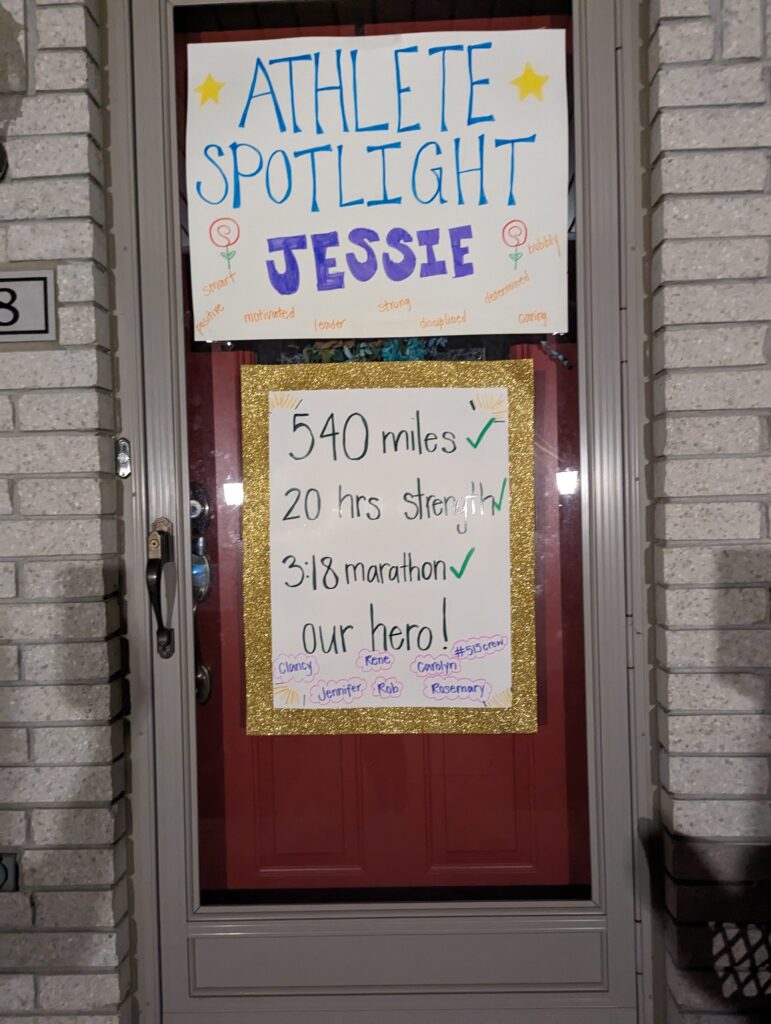 ATHLETE
SPOTLIGHT
JESSIE
smart
positive
motivated
leader
strong
disciplined
determined
bubbly
caring
8
540 miles ✓
20 hrs strength ✓
3:18 marathon ✓
our hero!
#515crew
Clancy
Rene
Carolyn
Jennifer
Rob
Rosemary